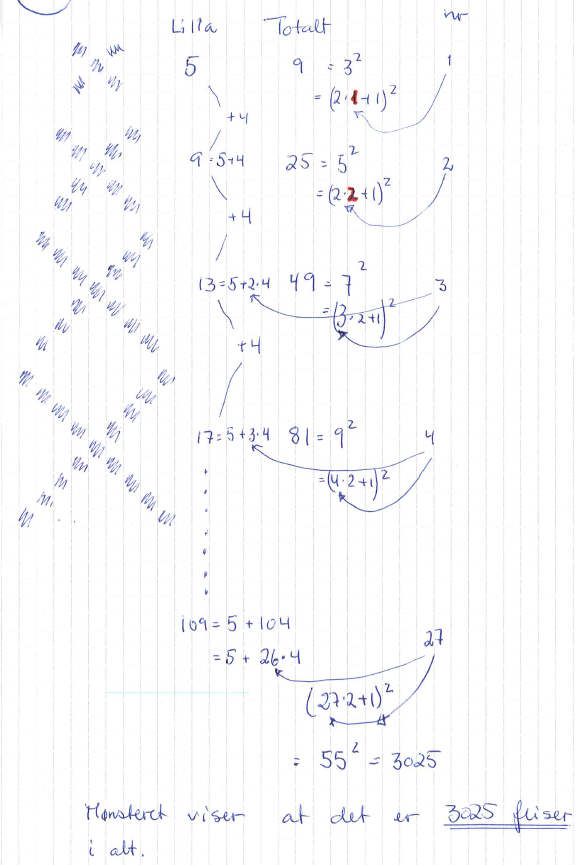 Lilla Totalt nr
5 9 = 3² 1
= (2·1+1)²
+4
9=5+4 25 = 5² 2
= (2·2+1)²
+4
13=5+2·4 49 = 7² 3
= (3·2+1)²
+4
17=5+3·4 81 = 9² 4
=(4·2+1)²
109 = 5 + 104
27
= 5 + 26·4
(27·2+1)²
= 55² = 3025
Mønsteret viser at det er 3025 fliser
i alt.